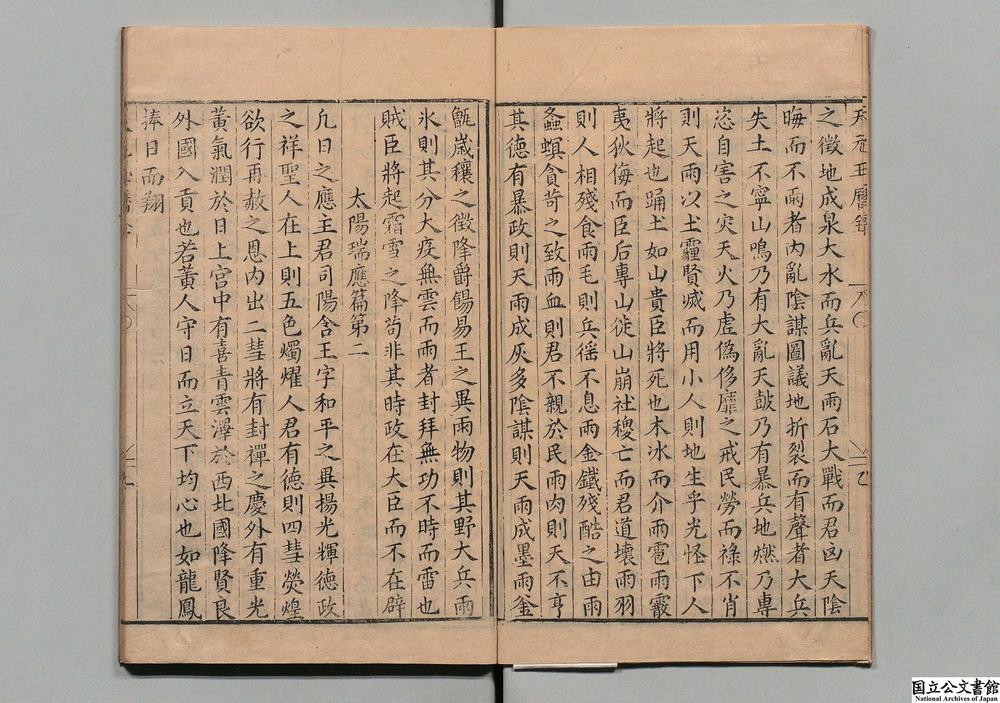 之徵地成泉大水而兵亂天雨石大戰而君凶天陰
晦而不雨者內亂陰謀圖議地折裂而有聲者大兵
失土不寧山鳴乃有大亂天鼓乃有暴兵地燃乃專
恣自害之災天火乃虛偽侈靡之戒民勞而祿不肖
則天雨以土霾賢滅而用小人則地生乎光怪下人
將起也踊土如山貴臣將死也木冰而介雨雹雨霰
夷狄侮而臣后專山徙山崩社稷亡而君道壞雨羽
則人相殘食雨毛則兵徭不息雨金鐵殘酷之由雨
螽螟貪苛之致雨血則君不親於民雨肉則天不享
其德有暴政則天雨成灰多陰謀則天雨成墨雨釜
甑歲穰之徵降爵餳易王之異雨物則其野大兵雨
氷則其分大疫無雲而雨者封拜無功不時而雷也
賊臣將起霜雪之降苟非其時政在大臣而不在辟
太陽瑞應篇第二
凡日之應主君司陽含王字和平之異揚光輝德政
之祥聖人在上則五色燭耀人君有德則四彗熒煌
欲行再赦之恩內出二彗將有封禪之慶外有重光
黃氣潤於日上宮中有喜青雲澤於西北國降賢良
外國入貢也若黃人守日而立天下均心也如龍鳳
捧日而翔
國立公文書館
National Archives of Japan